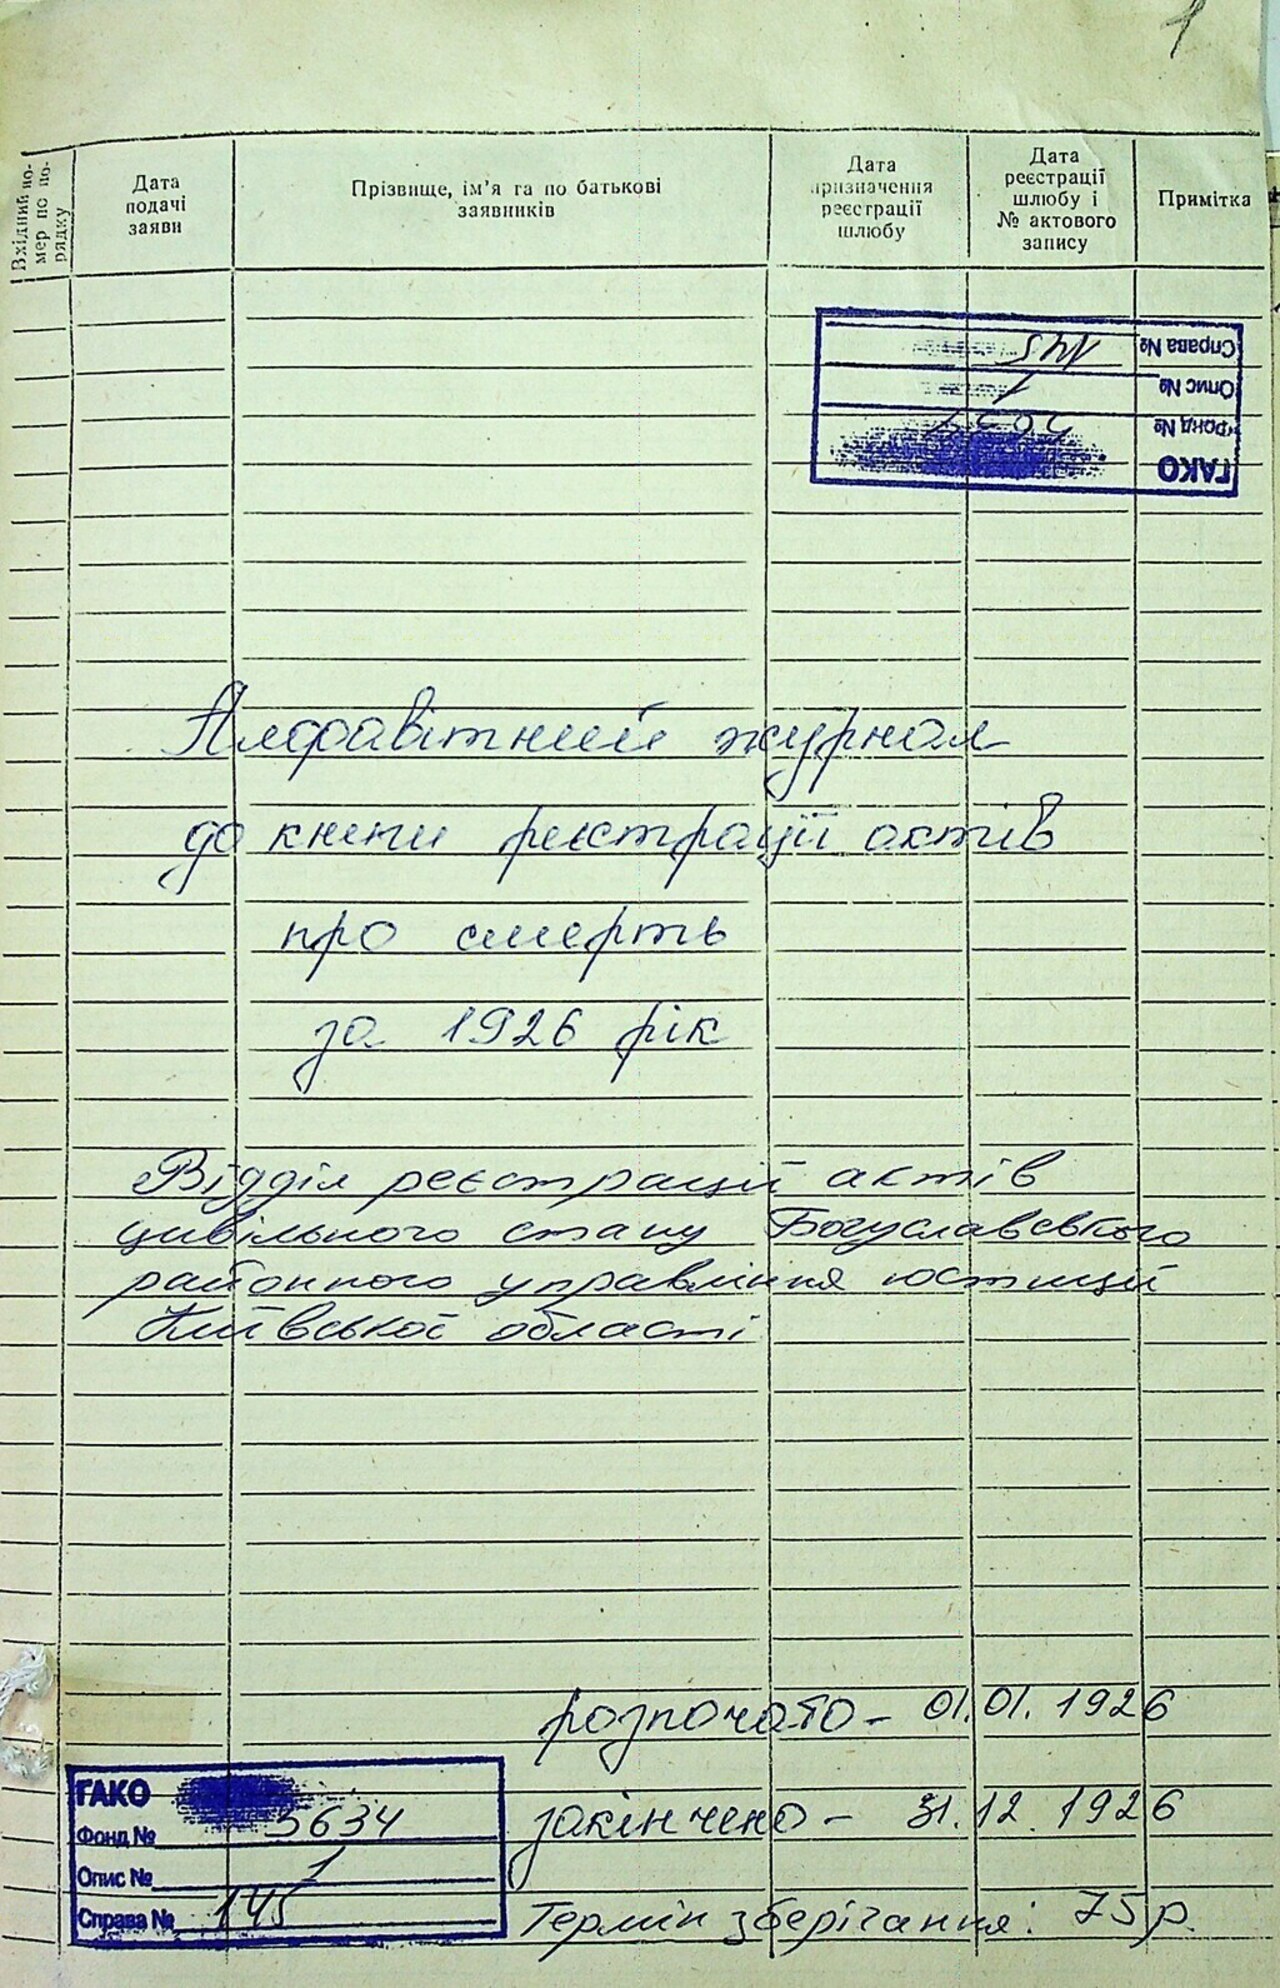 1
Вхідний но-
мер по по-
рядку
Дата
подачі
заяви
Прізвище, ім'я та по батькові
заявників
Дата
призначення
реєстрації
шлюбу
Дата
реєстрації
шлюбу і
№ актового
запису
Примітка
Справа № 145
Опис № 1
Фонд №
ГАКО
Алфавітний журнал
до книги реєстрації актів
про смерть
за 1926 рік
Відділ реєстрації актів
цивільного стану Богуславського
районного управління юстиції
Київської області
розпочато – 01.01.1926
закінчено – 31.12.1926
Термін зберігання: 75 р.
ГАКО
Фонд № 5634
Опис № 1
Справа № 145